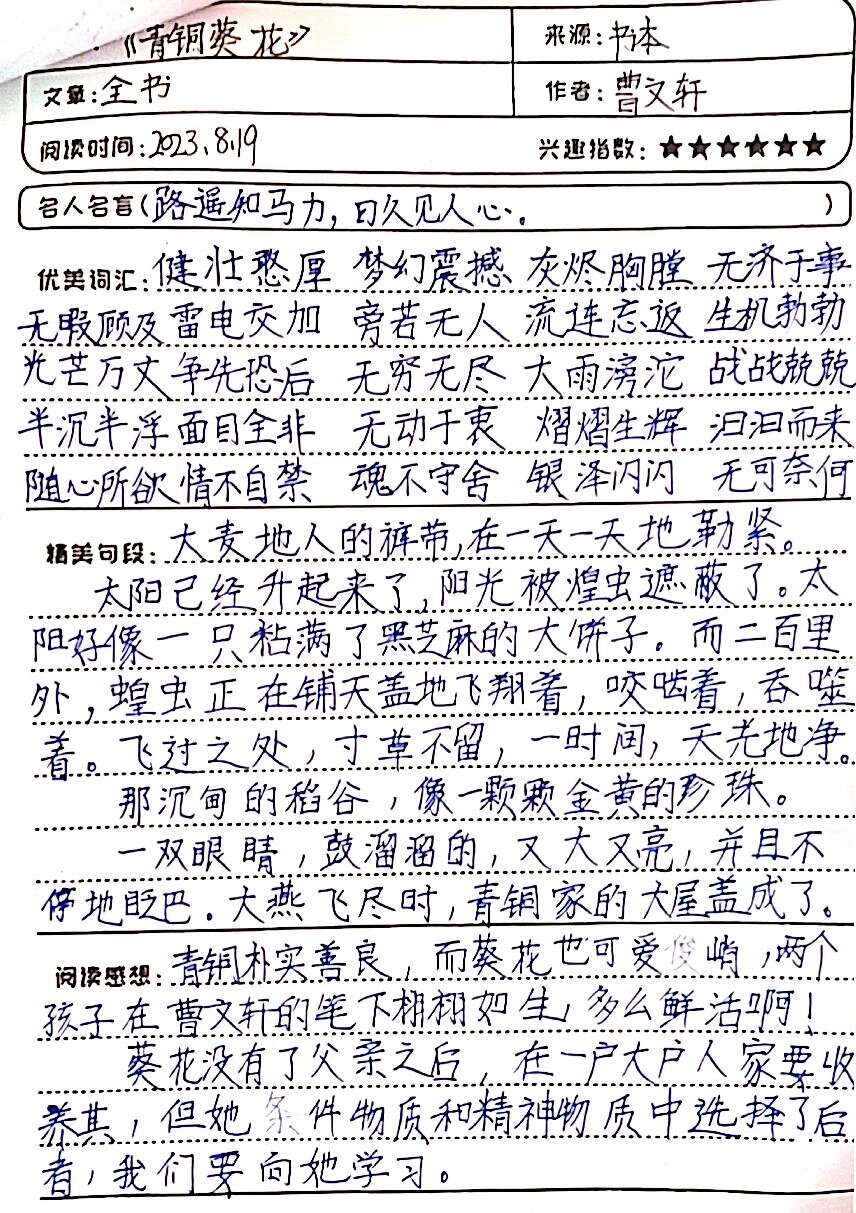 《青铜葵花》 来源:书本
文章:全书 作者:曹文轩
阅读时间:2023.8.19 兴趣指数:★★★★★★
名人名言(路遥知马力,日久见人心。)
优美词汇:健壮憨厚 梦幻震撼 灰烬胸膛 无济于事
无暇顾及 雷电交加 旁若无人 流连忘返 生机勃勃
光芒万丈 争先恐后 无穷无尽 大雨滂沱 战战兢兢
半沉半浮 面目全非 无动于衷 熠熠生辉 汩汩而来
随心所欲 情不自禁 魂不守舍 银泽闪闪 无可奈何
精美句段:大麦地人的裤带,在一天一天地勒紧。
太阳已经升起来了,阳光被煌虫遮蔽了。太
阳好像一只粘满了黑芝麻的大饼子。而二百里
外,蝗虫正在铺天盖地飞翔着,咬啮着,吞噬
着。飞过之处,寸草不留,一时间,天光地净。
那沉甸的稻谷,像一颗颗金黄的珍珠。
一双眼睛,鼓溜溜的,又大又亮,并且不
停地眨巴。大燕飞尽时,青铜家的大屋盖成了。
阅读感想:青铜朴实善良,而葵花也可爱俊峭,两个
孩子在曹文轩的笔下栩栩如生,多么鲜活啊!
葵花没有了父亲之后,在一户大户人家要收
养其,但她条件物质和精神物质中选择了后
者,我们要向她学习。